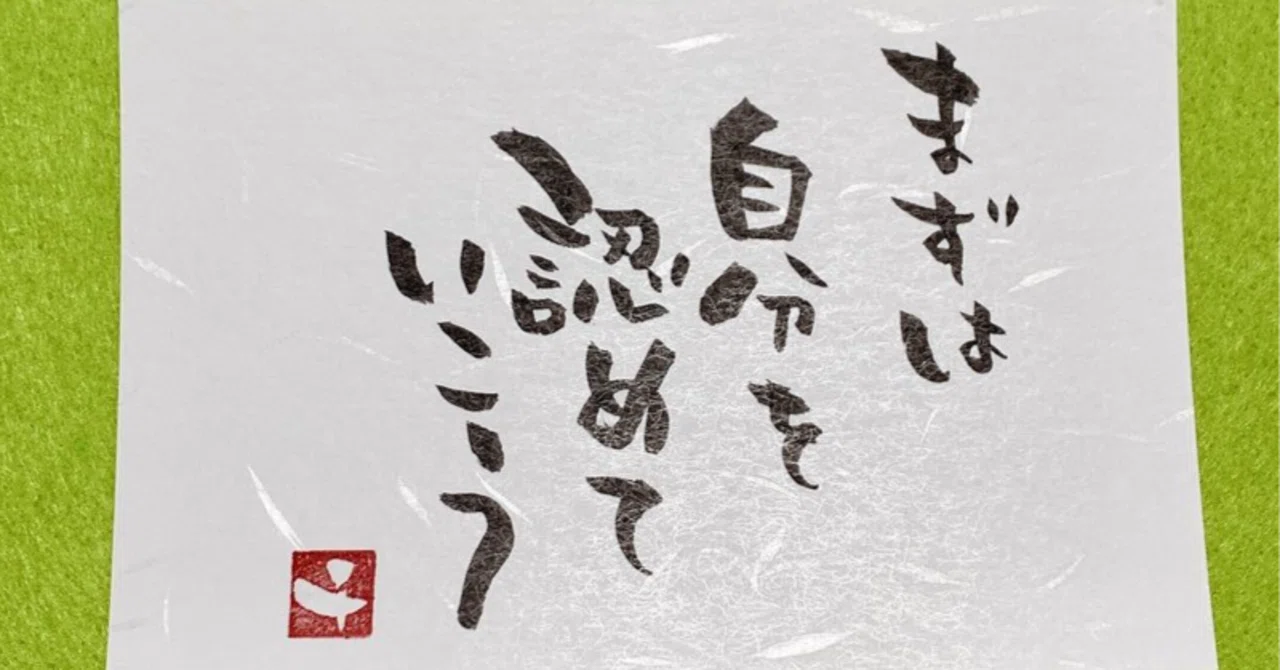 まずは
自分を
認めて
いこう